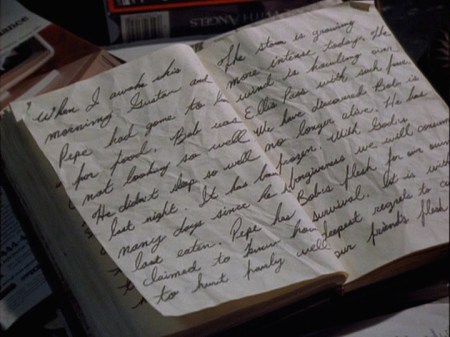 When I awake this
morning Gustav and
Pepe had gone to hu
for food. Bob was
not looking so well
He didn't sleep so well
last night. It has be
many days since he
last eaten. Pepe ha
claimed to know how
to hunt fairly well
The storm is growing
more intense today. The
wind is howling over
Ellie Pass with such force
We have Bob is
no longer alive. He has
frozen. With God's
forgiveness we will consume
Bob's flesh for our own
survival. It is with
deepest regrets to co
our friends flesh
ANGELS